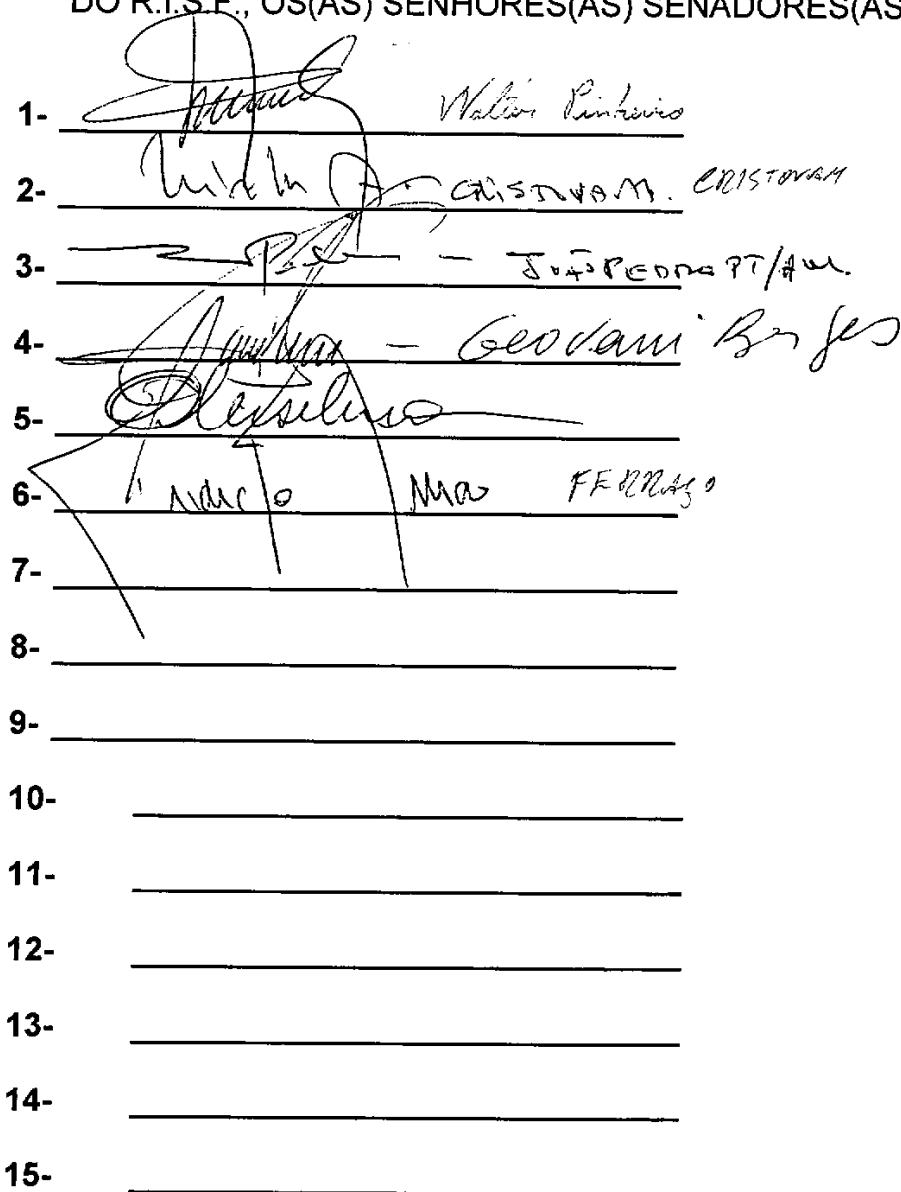 DO R.I.S.F., OS(AS) SENHORES(AS) SENADORES(AS
1- Walter Pinheiro
2- CRISTOVAM. CRISTOVAM
3- - JOÃO PEDRO PT/AM.
4- - Geovani Borges
5-
6- FERRAÇO
7-
8-
9-
10-
11-
12-
13-
14-
15-